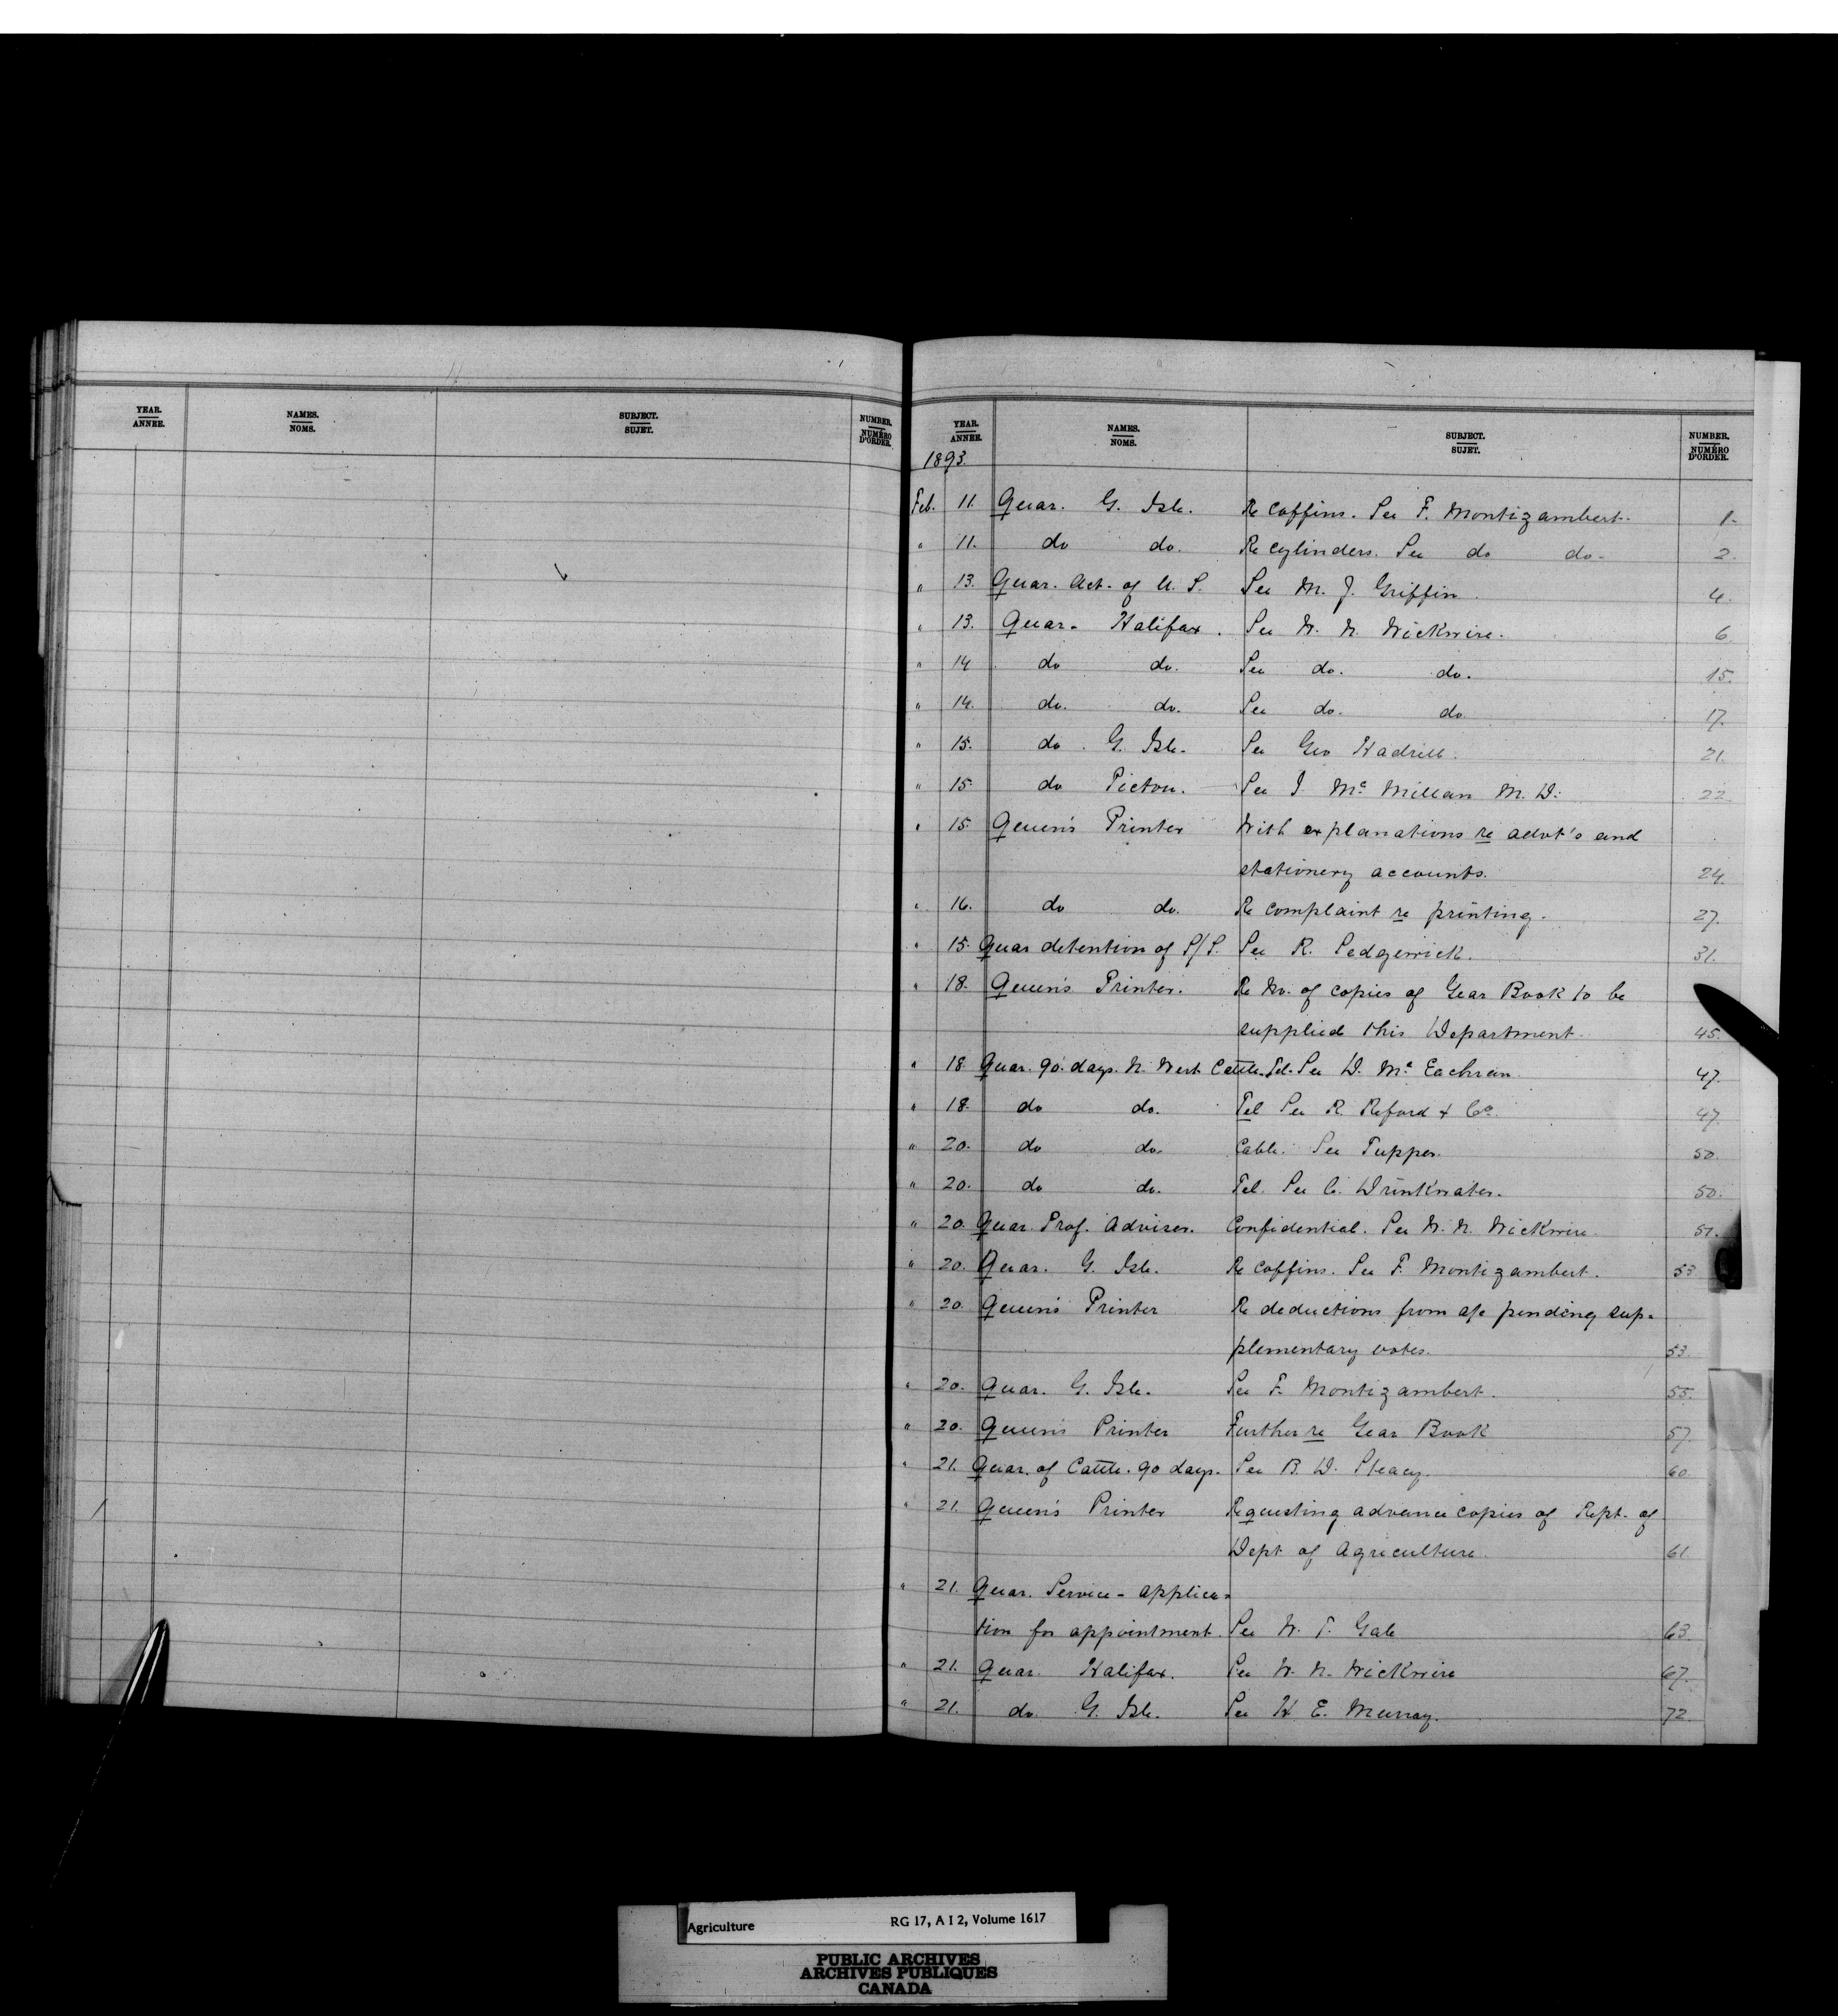 YEAR. NAMES. SUBJECT. NUMBER.
ANNEE. NOMS. SUJET. NUMÉRO D'ORDER.
YEAR. NAMES. SUBJECT. NUMBER.
ANNEE. NOMS. SUJET. NUMÉRO D'ORDER.
1893.
Feb. 11. Quar. G. Isle. Re coffins. See F. Montizambert. 1.
" 11. do do. Re cylinders. See do do. 2.
" 13. Quar. Act. of U. S. See M. J. Griffin. 4.
" 13. Quar. Halifax. See W. N. Wickwire. 6
" 14 do do. See do. do. 15.
" 14. do. do. See do. do 17.
" 15. do. G. Isle. See Geo Hadrill. 21.
" 15. do Pictou. See J. Mc Millan M. D. 22
" 15. Queen's Printer With explanations re advt's and
stationery accounts. 24.
" 16. do do. Re complaint re printing. 27.
" 15. Quar detention of S/S. See R. Sedgewick. 31.
" 18. Queen's Printer. Re No. of copies of Year Book to be
supplied this Department. 45.
" 18 Quar. 90 days. N. West Cattle. Tel. See D. Mc Eachran. 47.
" 18. do do. Tel See R. Reford & Co. 47.
" 20. do do. Cable. See Tupper. 50.
" 20. do do. Tel. See C. Drinkwater. 50.
" 20. Quar. Prof. Adviser. Confidential. See W. N. Wickwire. 51.
" 20. Quar. G. Isle. Re coffins. See F. Montizambert. 53
" 20. Queen's Printer Re deductions from a/c pending sup-
plementary votes. 53.
" 20. Quar. G. Isle. See F. Montizambert. 55.
" 20. Queen's Printer Further re Year Book 57.
" 21. Quar. of Cattle. 90 days. See B. D. Steacy. 60.
" 21. Queen's Printer Requesting advance copies of Rept. of
Dept of Agriculture. 61
" 21. Quar. Service - applica-
tion for appointment. See W. F. Gale 63.
" 21. Quar. Halifax. See W. N. Wickwire 67.
" 21. do. G. Isle. See H. E. Murray. 72.
Agriculture RG 17, A I 2, Volume 1617
PUBLIC ARCHIVES
ARCHIVES PUBLIQUES
CANADA